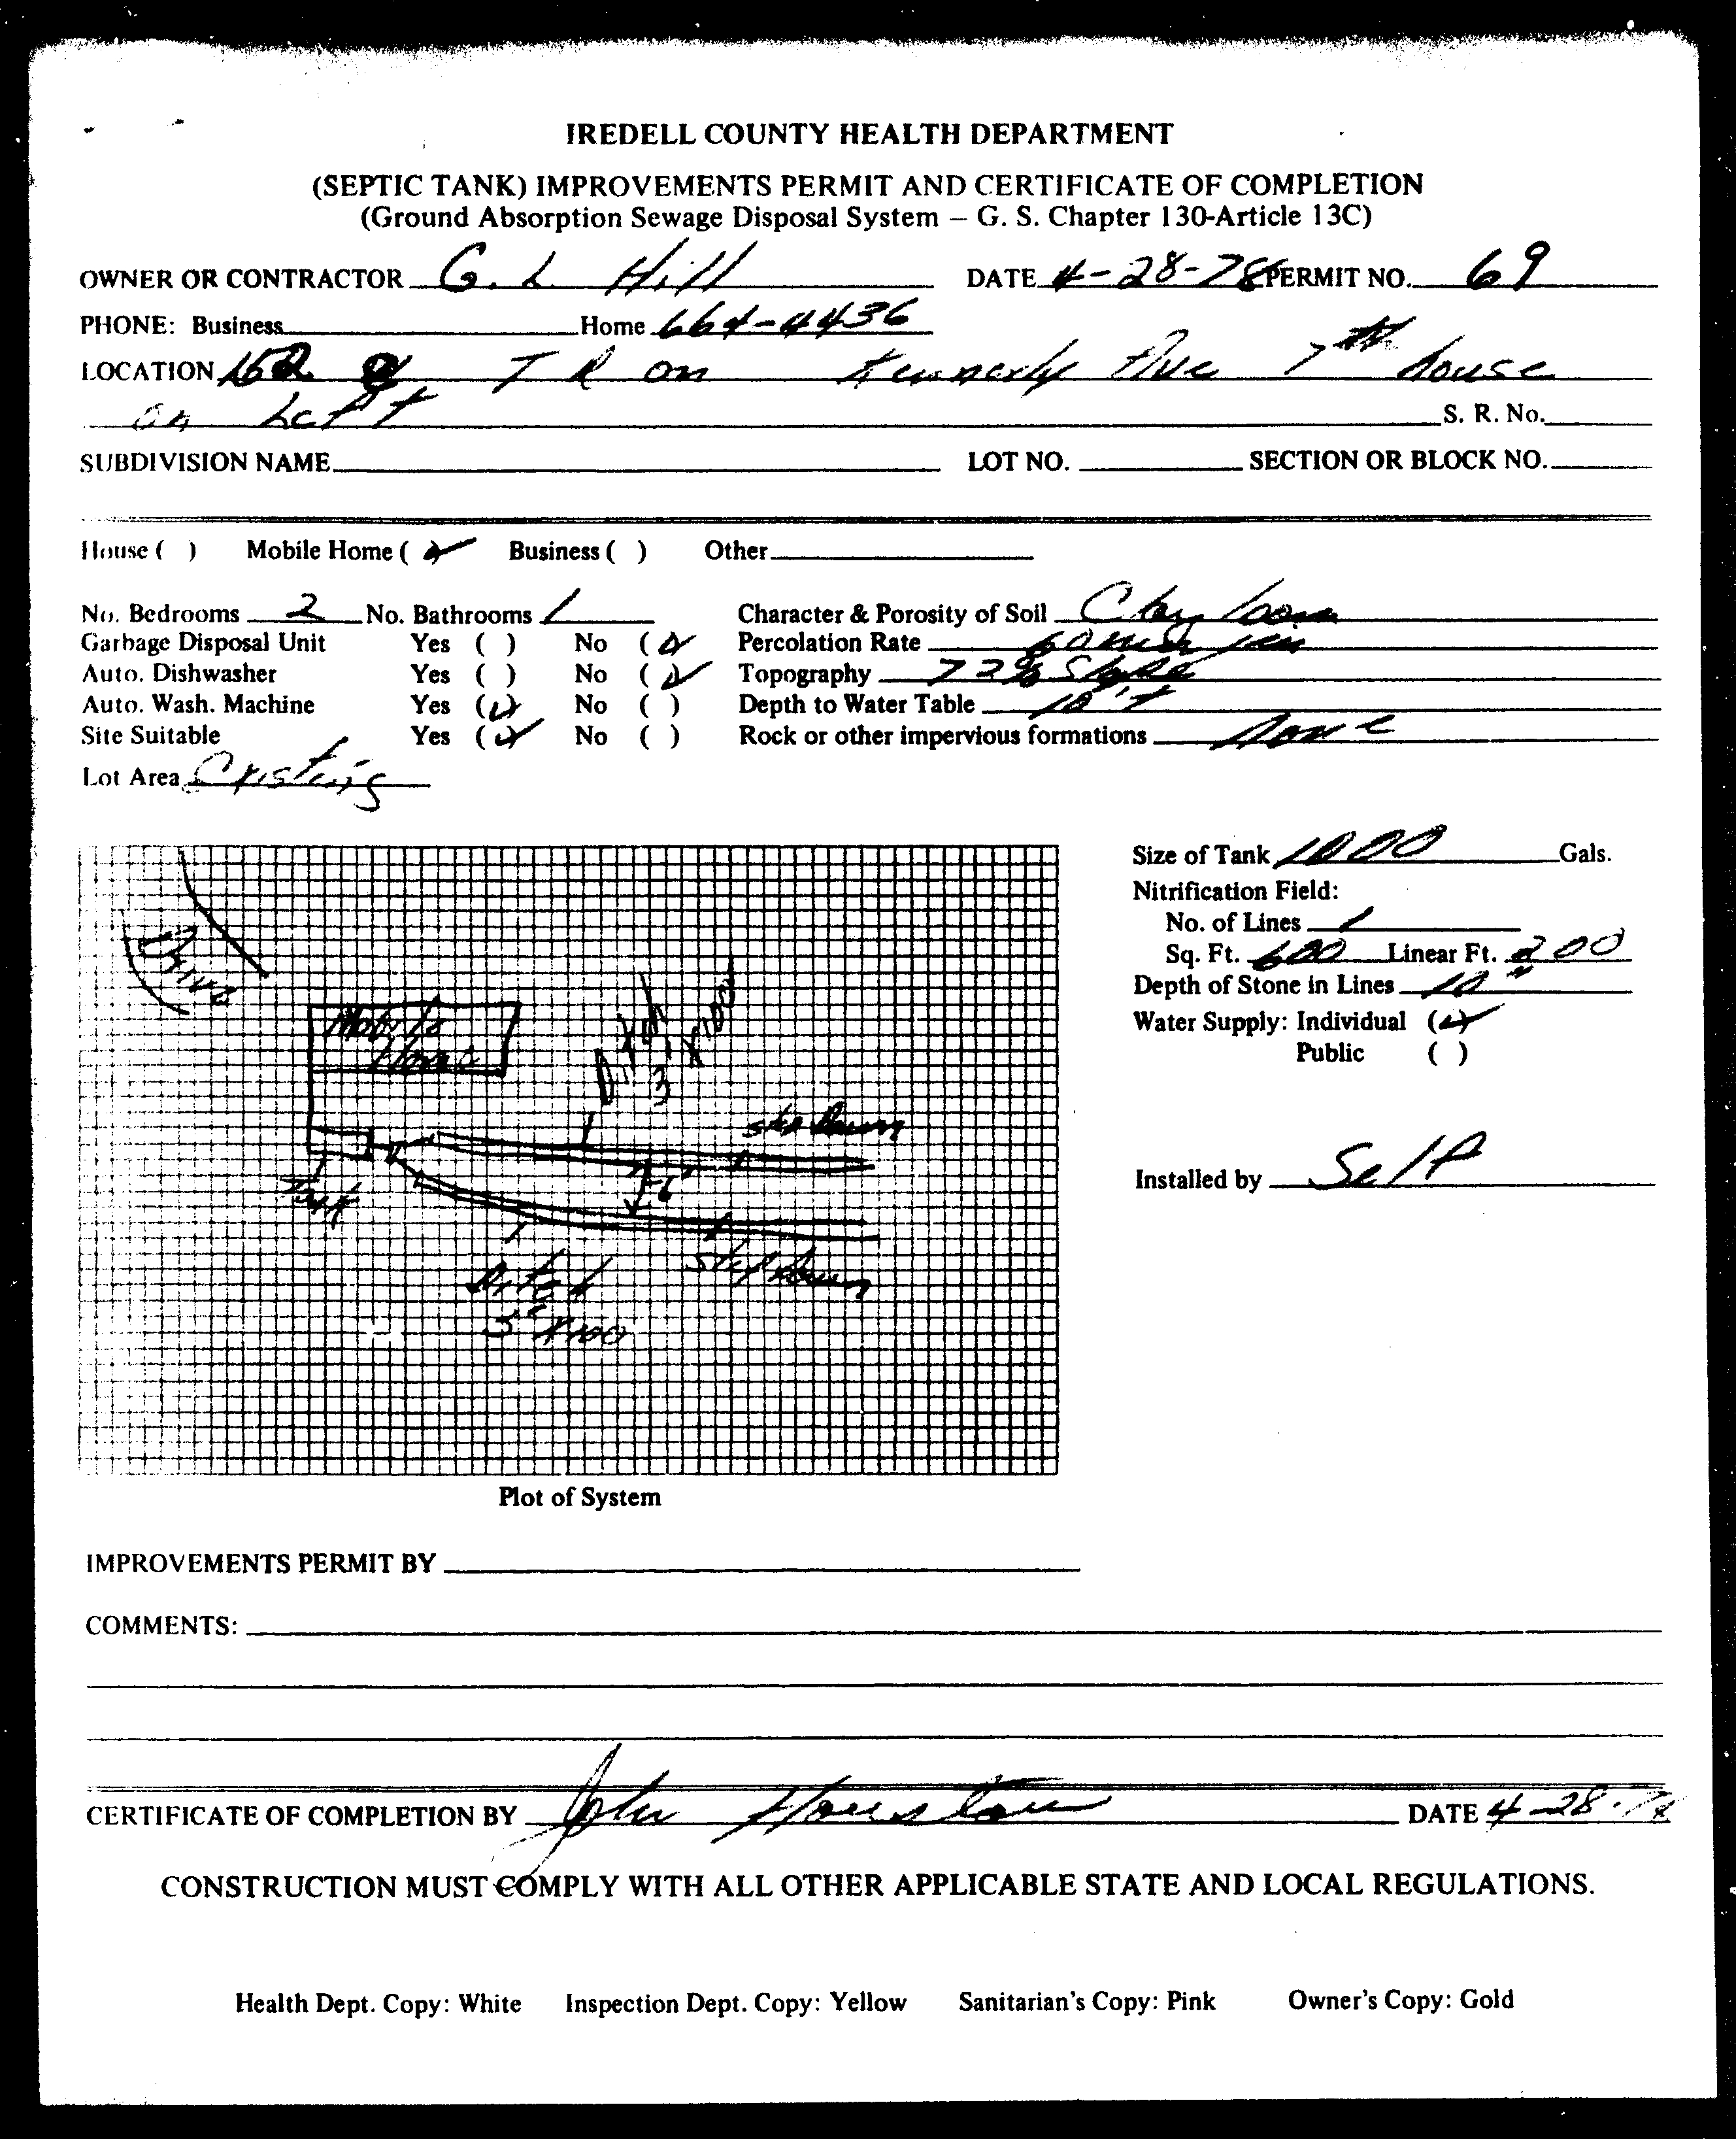 IREDELL COUNTY HEALTH DEPARTMENT
(SEPTIC TANK) IMPROVEMENTS PERMIT AND CERTIFICATE OF COMPLETION
(Ground Absorption Sewage Disposal System – G. S. Chapter 130-Article 13C)
OWNER OR CONTRACTOR G. L. Hill DATE 4-28-78 PERMIT NO. 69
PHONE: Business Home 664-4436
LOCATION T R on Kennerly Ave 7th house
on Left S. R. No.
SUBDIVISION NAME LOT NO. SECTION OR BLOCK NO.
House ( ) Mobile Home (✓) Business ( ) Other
No. Bedrooms 2 No. Bathrooms 1 Character & Porosity of Soil Clay loam
Garbage Disposal Unit Yes ( ) No (✓) Percolation Rate 60 min
Auto. Dishwasher Yes ( ) No (✓) Topography Slope
Auto. Wash. Machine Yes (✓) No ( ) Depth to Water Table 10'+
Site Suitable Yes (✓) No ( ) Rock or other impervious formations None
Lot Area Existing
Size of Tank 1000 Gals.
Nitrification Field:
No. of Lines 1
Sq. Ft. 600 Linear Ft. 200
Depth of Stone in Lines 12"
Water Supply: Individual (✓)
Public ( )
Installed by Self
Drive
Mobile
Home
Ditch
3' X100'
step Down
6'
Tank
Step Down
Ditch
3' X100
Plot of System
IMPROVEMENTS PERMIT BY
COMMENTS:
CERTIFICATE OF COMPLETION BY John Houston DATE 4-28-78
CONSTRUCTION MUST COMPLY WITH ALL OTHER APPLICABLE STATE AND LOCAL REGULATIONS.
Health Dept. Copy: White Inspection Dept. Copy: Yellow Sanitarian's Copy: Pink Owner's Copy: Gold